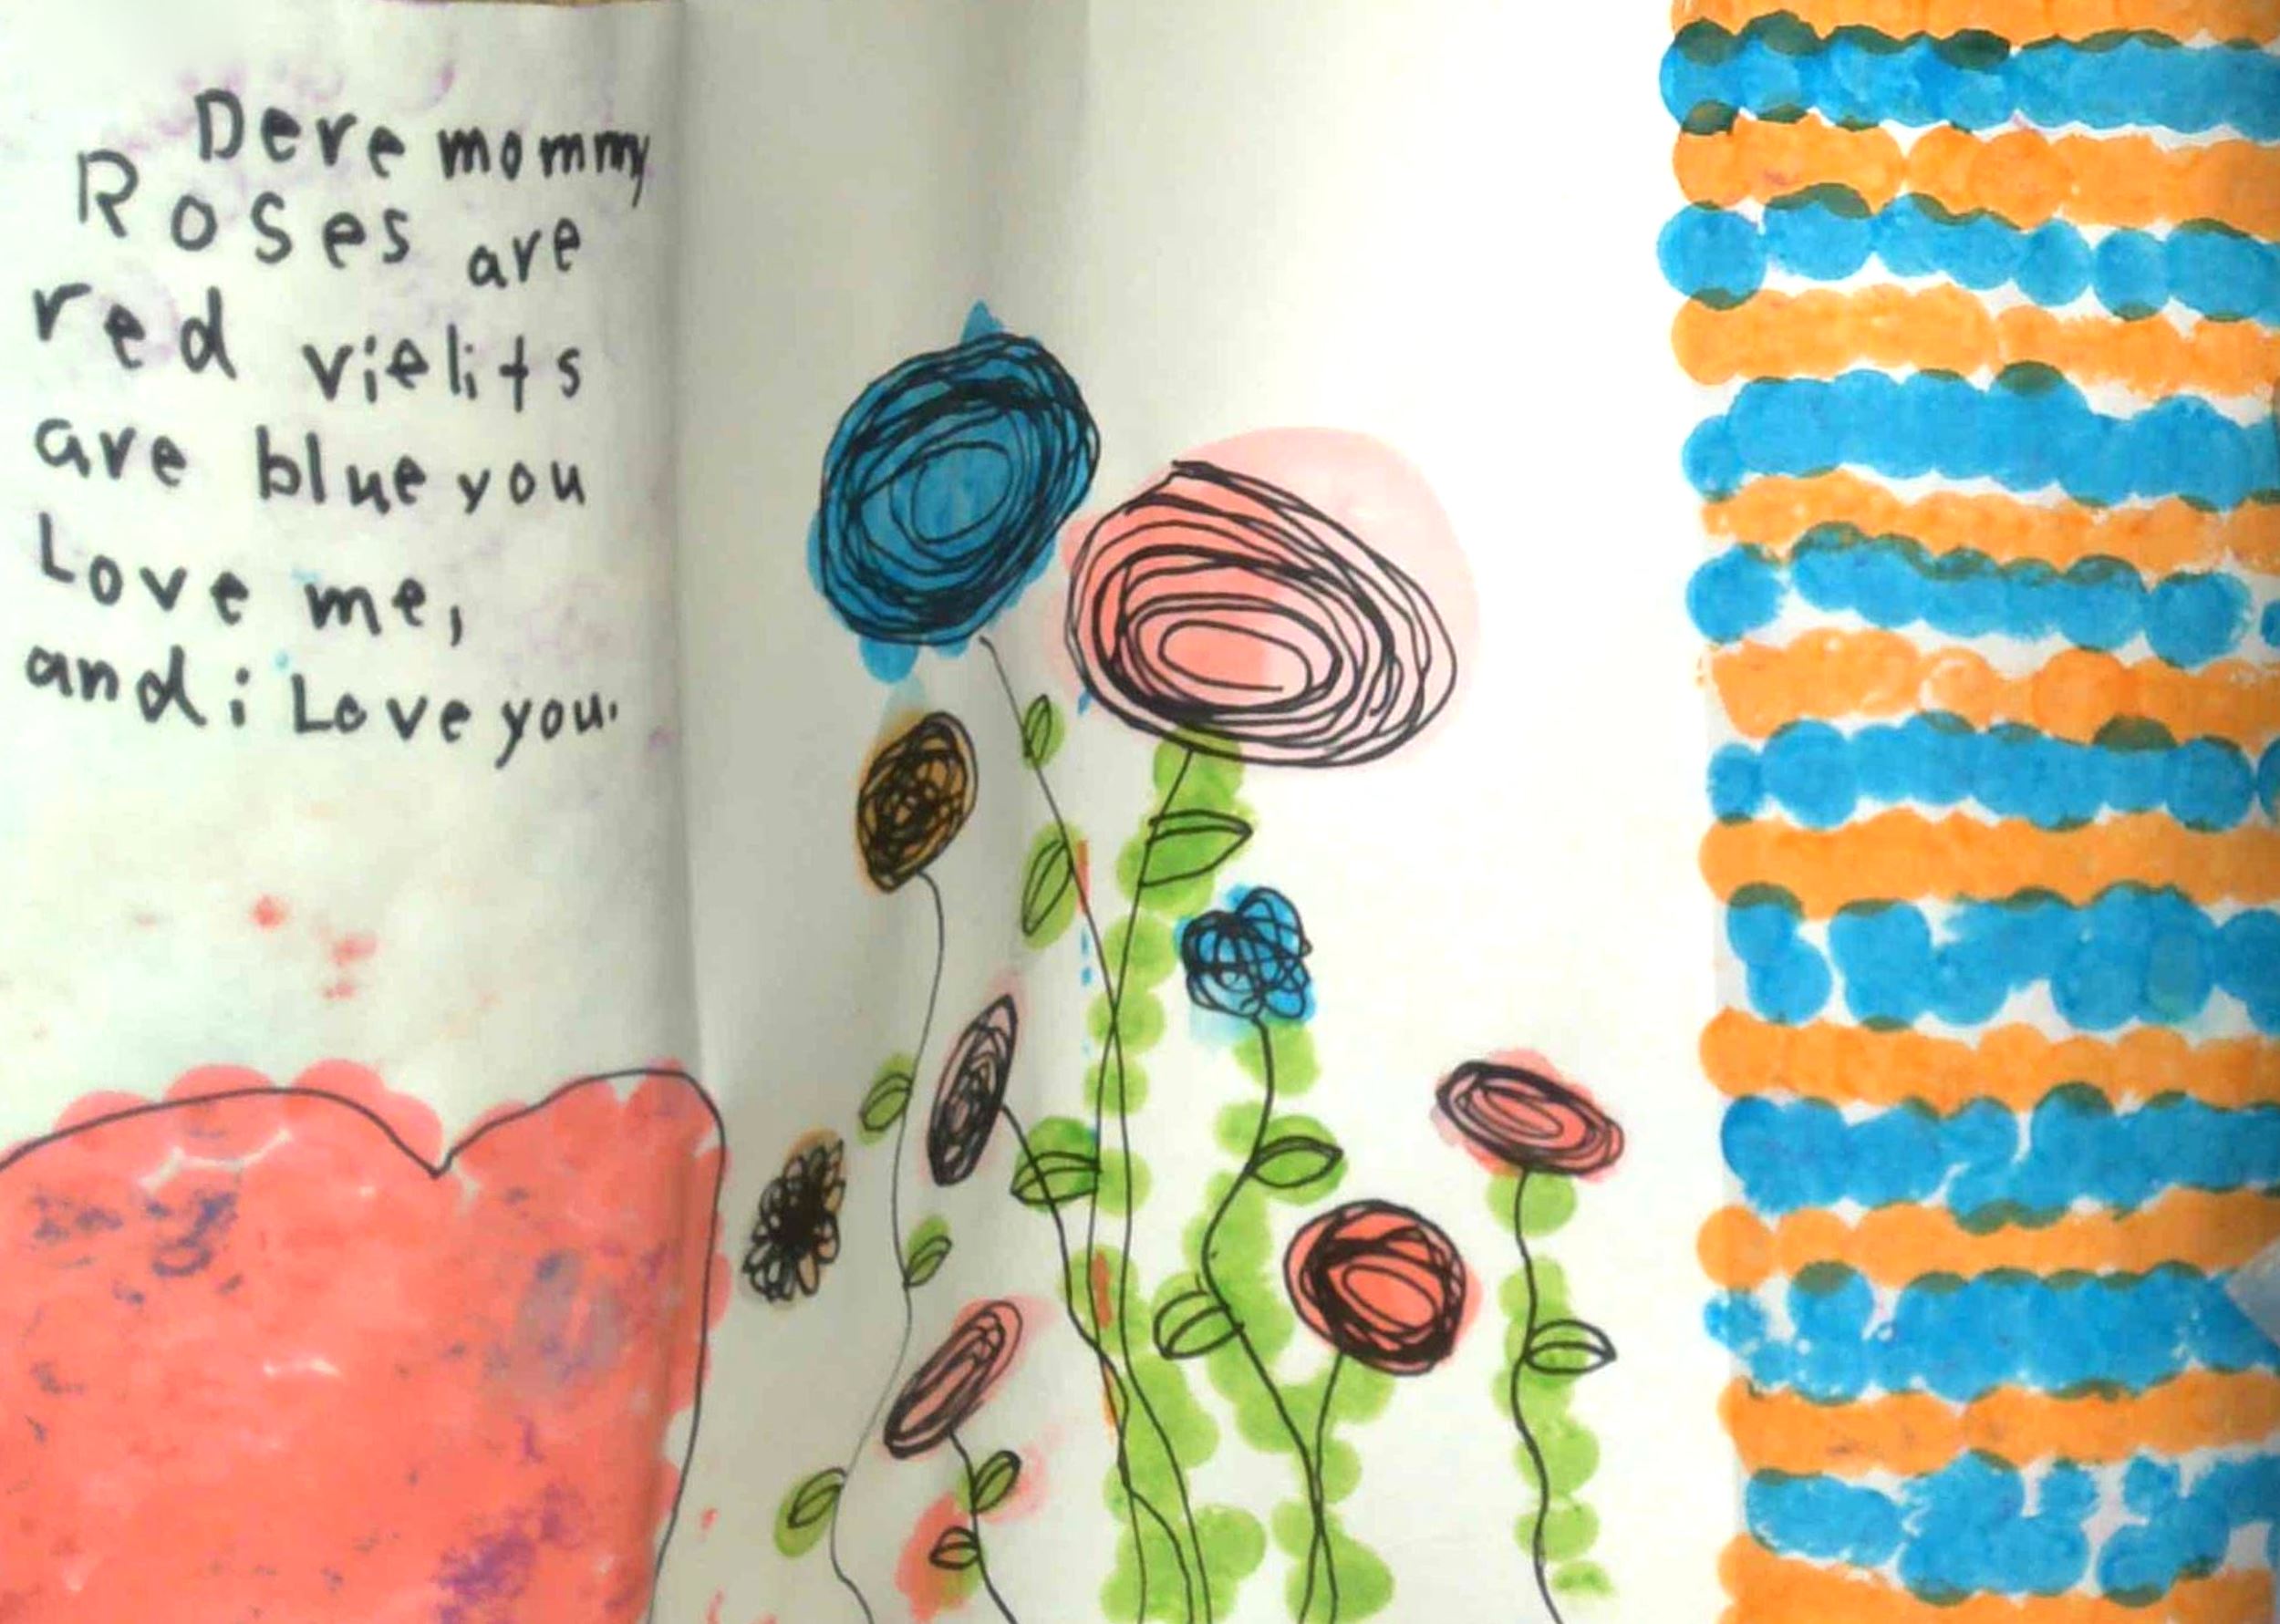 Dere mommy
Roses are
red vielits
are blue you
Love me,
and i Love you.